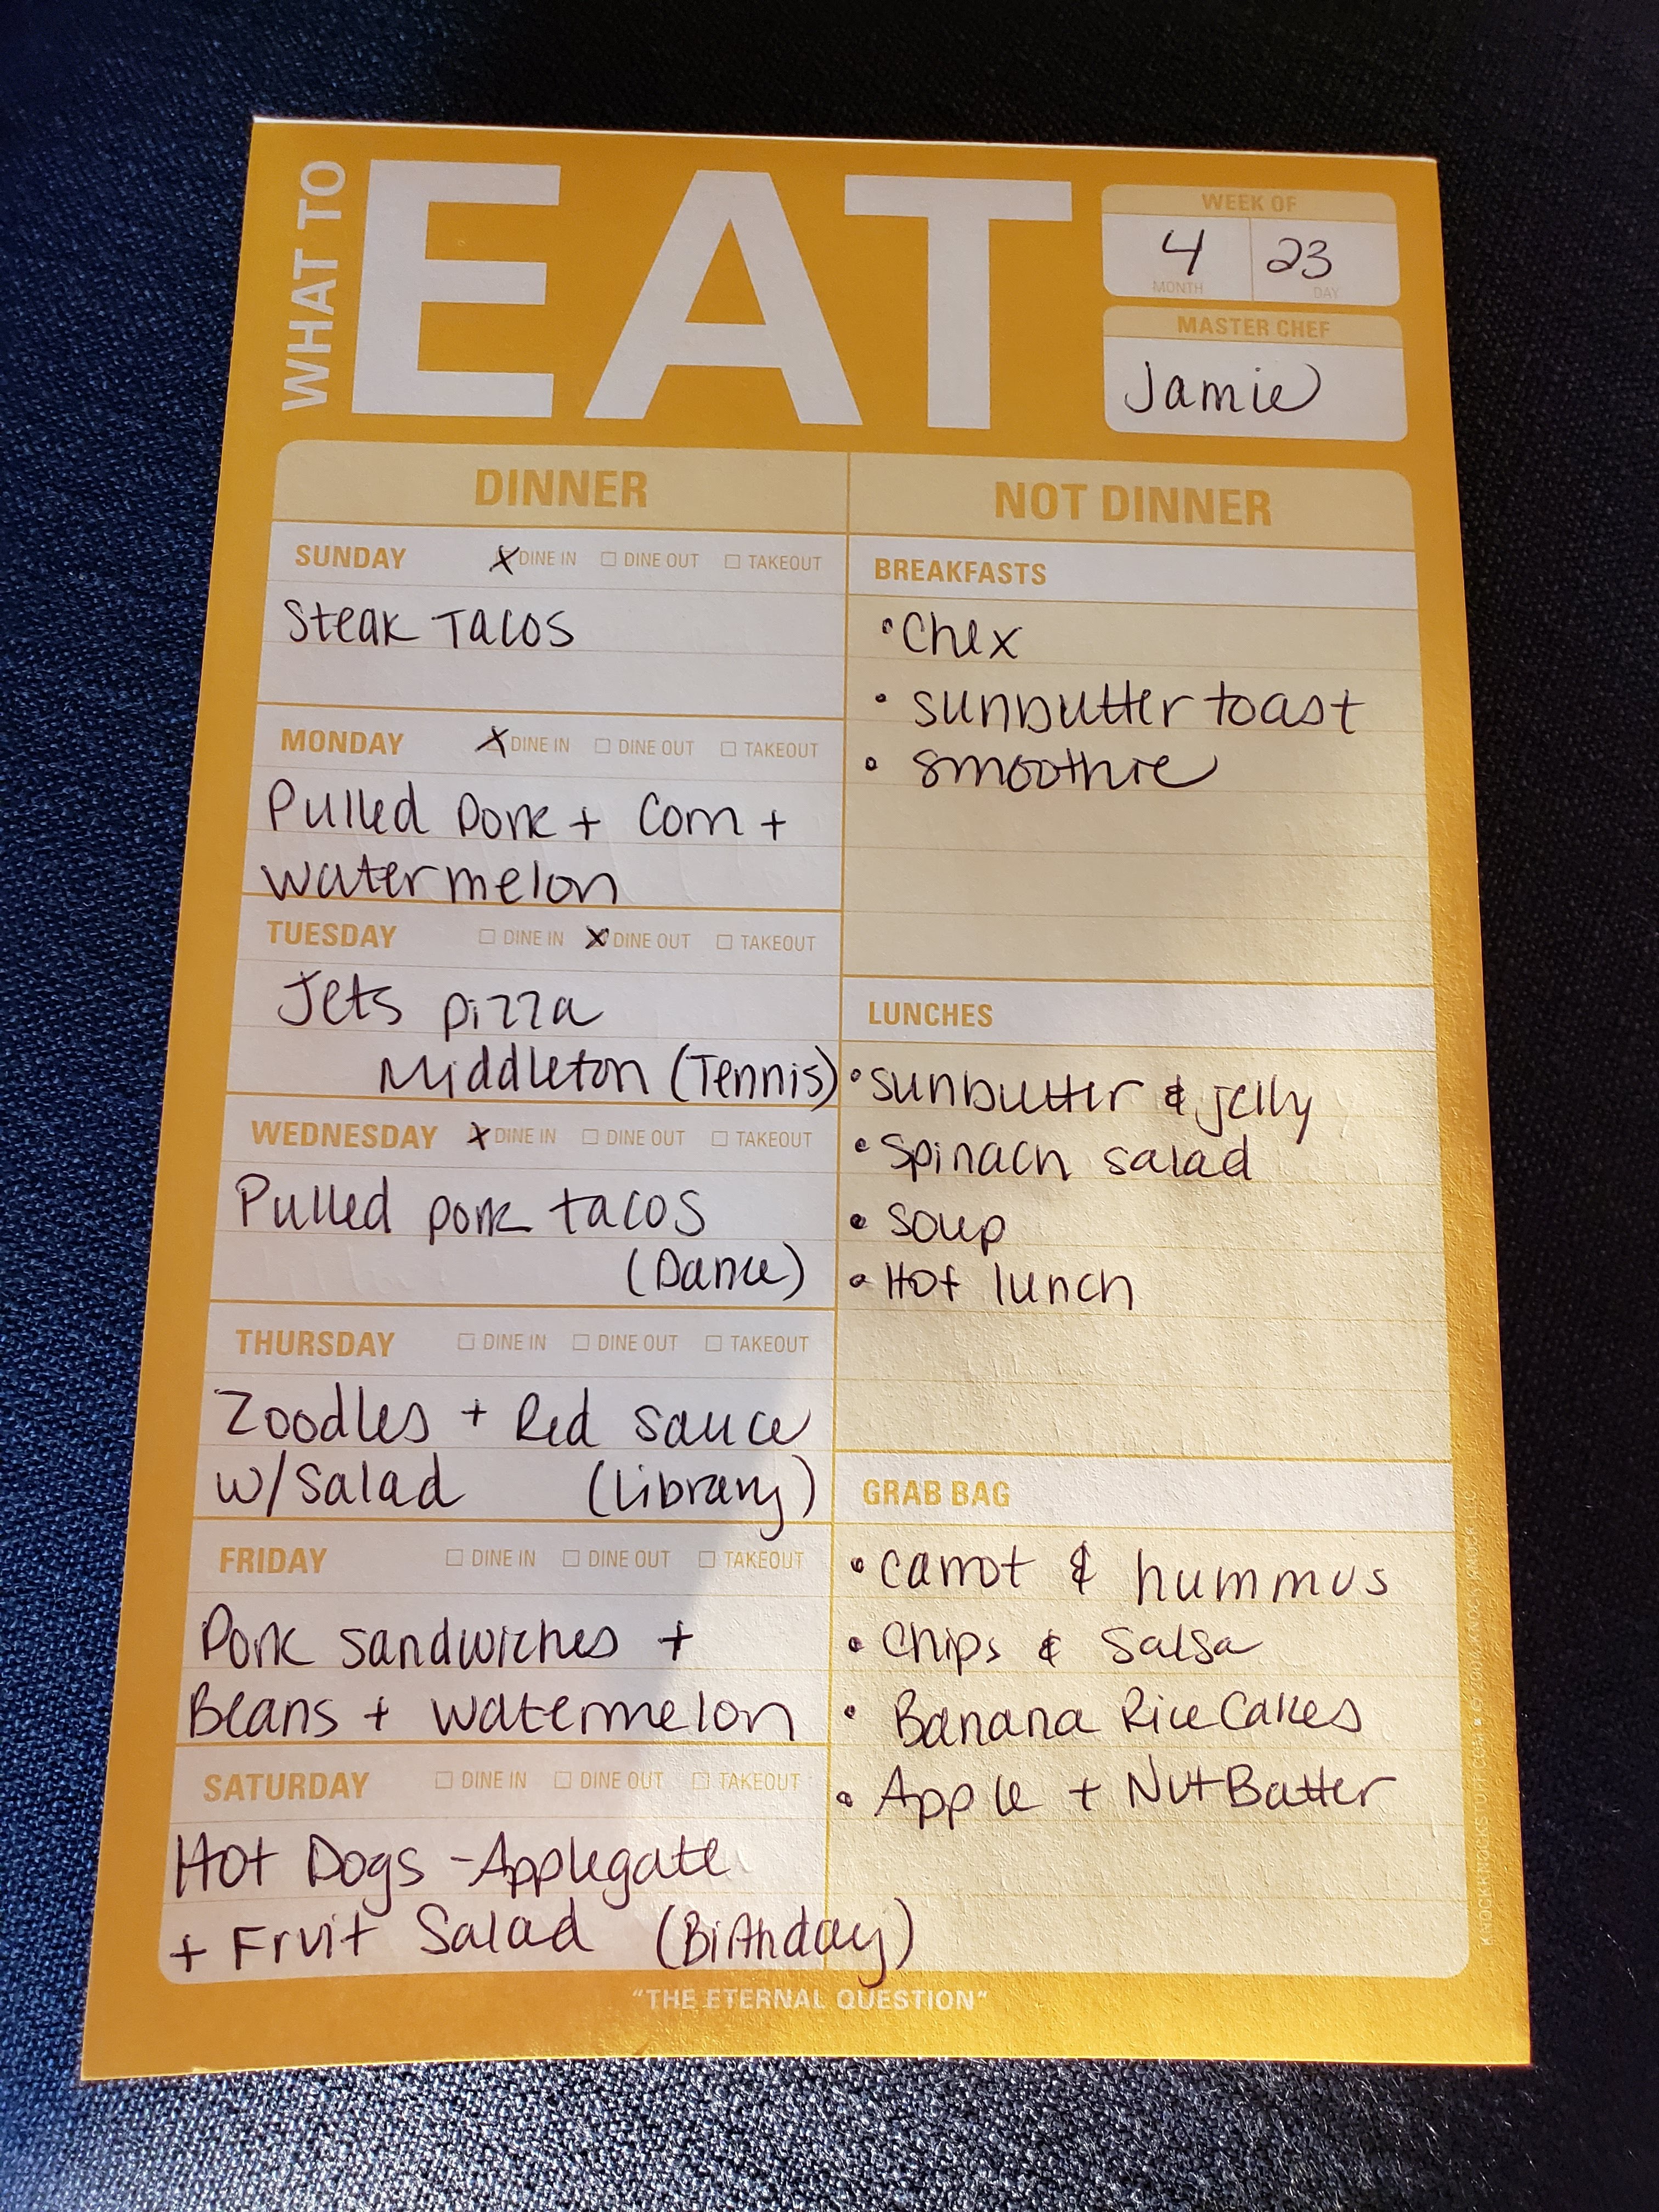 WHAT TO
EAT
WEEK OF
4 23
MONTH DAY
MASTER CHEF
Jamie
DINNER
SUNDAY DINE IN DINE OUT TAKEOUT
Steak Tacos
MONDAY DINE IN DINE OUT TAKEOUT
Pulled Pork + Corn +
watermelon
TUESDAY DINE IN DINE OUT TAKEOUT
Jets pizza
Middleton (Tennis)
WEDNESDAY DINE IN DINE OUT TAKEOUT
Pulled pork tacos
(Dance)
THURSDAY DINE IN DINE OUT TAKEOUT
Zoodles + Red sauce
w/salad (Library)
FRIDAY DINE IN DINE OUT TAKEOUT
Pork sandwiches +
Beans + watermelon
SATURDAY DINE IN DINE OUT TAKEOUT
Hot Dogs - Applegate
+ Fruit Salad (Birthday)
NOT DINNER
BREAKFASTS
• Chex
• sunbutter toast
• smoothie
LUNCHES
• sunbutter & jelly
• Spinach salad
• soup
• Hot lunch
GRAB BAG
• carrot & hummus
• Chips & Salsa
• Banana Rice Cakes
• Apple + Nut Butter
"THE ETERNAL QUESTION"
KNOCKKNOCKSTUFF.COM • © 2004 KNOCK KNOCK LLC